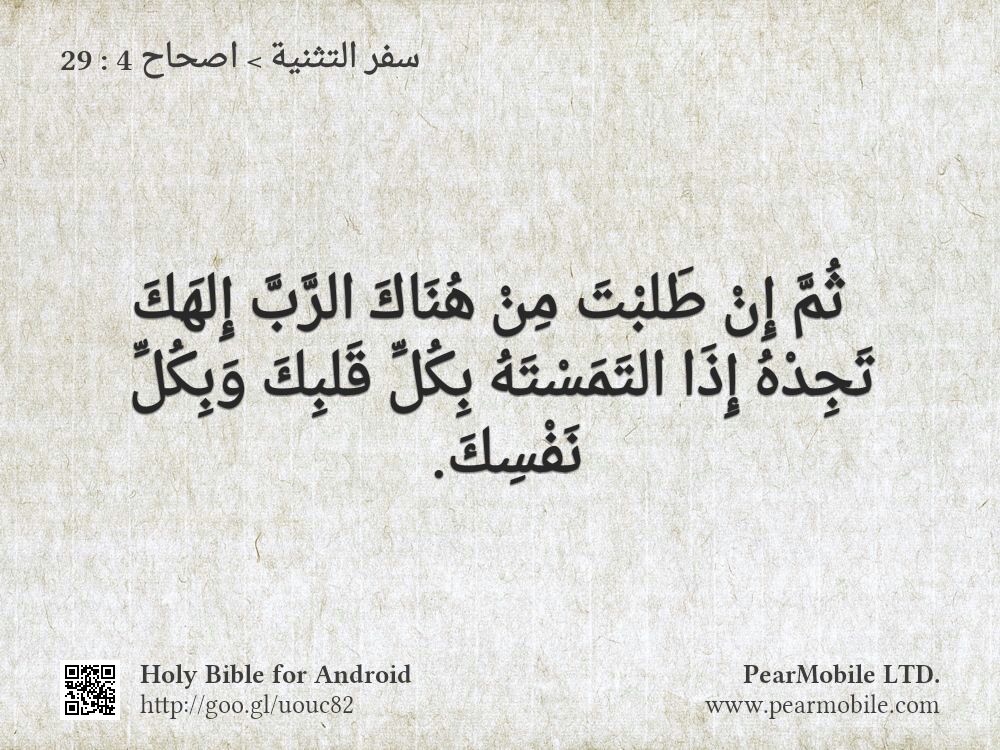 سفر التثنية > اصحاح 4 : 29
ثُمَّ إِنْ طَلبْتَ مِنْ هُنَاكَ الرَّبَّ إِلهَكَ
تَجِدْهُ إِذَا التَمَسْتَهُ بِكُلِّ قَلبِكَ وَبِكُلِّ
نَفْسِكَ.
Holy Bible for Android
http://goo.gl/uouc82
PearMobile LTD.
www.pearmobile.com